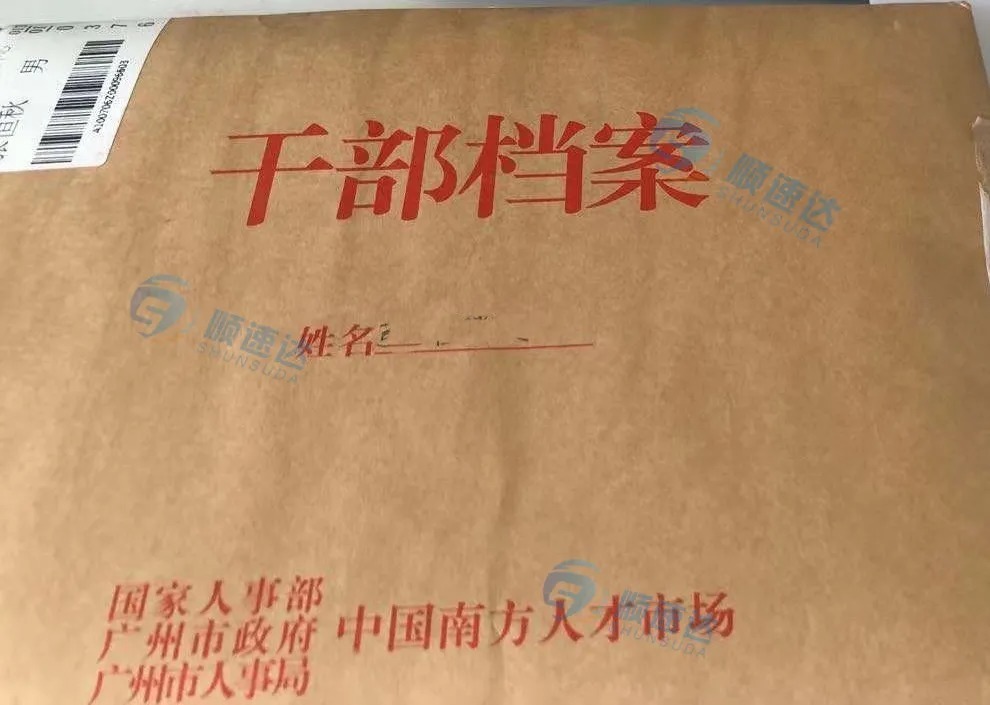 恒秋 男
4100706Z00096603
干部档案
顺速达
SHUNSUDA
顺速达
SHUNSUDA
姓名
国家人事部
广州市政府
广州市人事局
中国南方人才市场
顺速达
SHUNSUDA